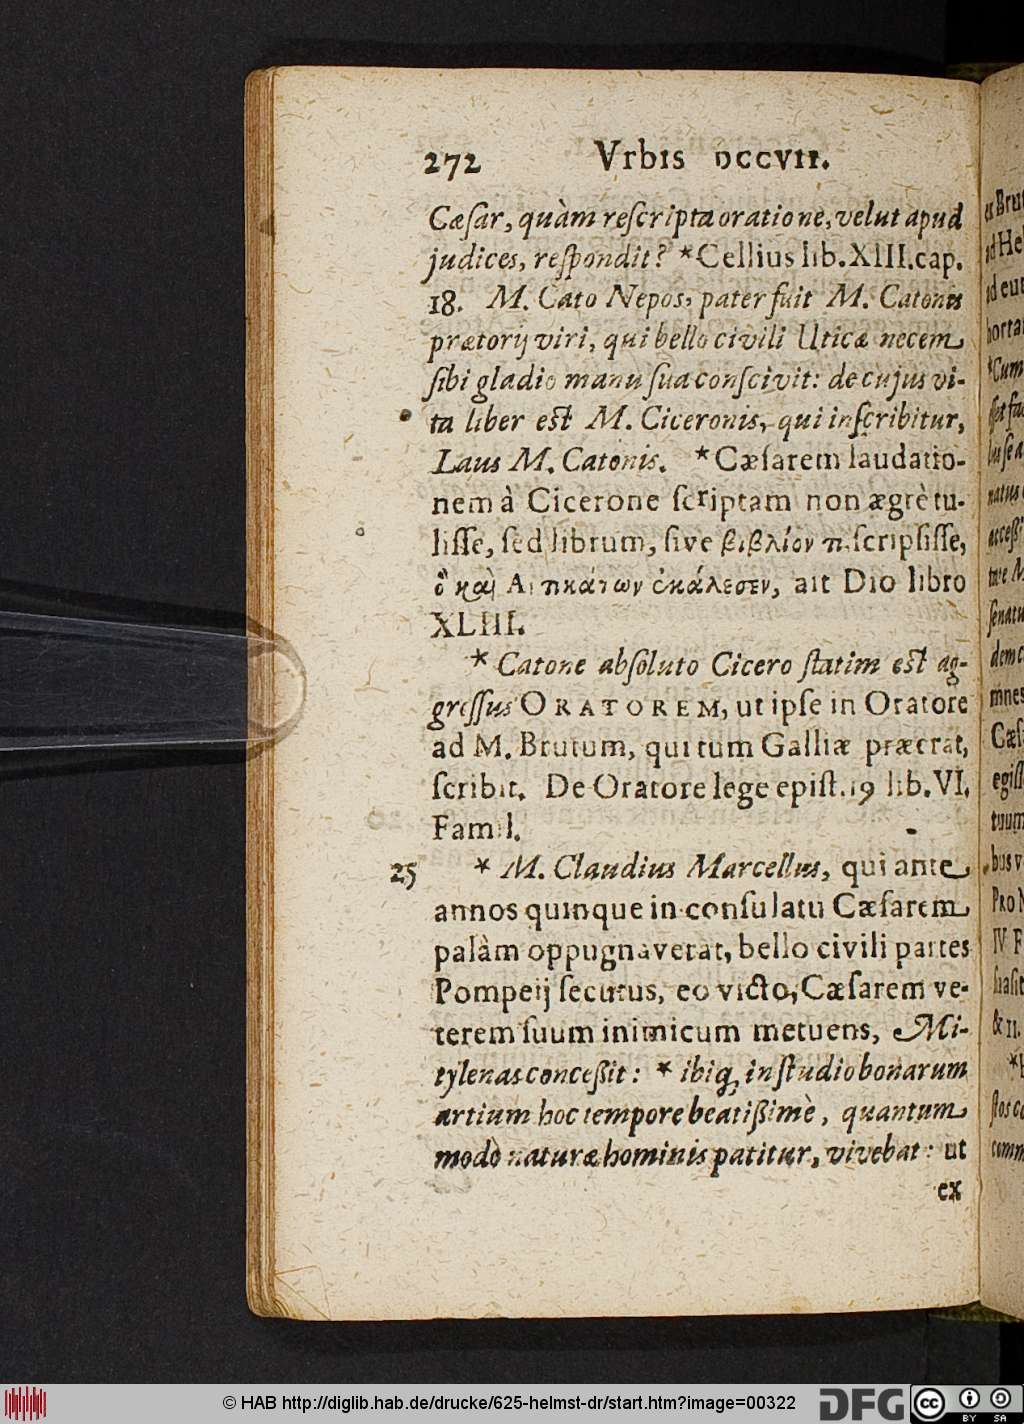 272 Vrbis DCCVII.
Cæſar, quàm reſcripta oratione, velut apud
judices, reſpondit? *Cellius lib. XIII. cap.
18. M. Cato Nepos, pater fuit M. Catonis
prætorij viri, qui bello civili Uticæ necem
ſibi gladio manu ſua conſcivit: de cujus vi-
ta liber est M. Ciceronis, qui inſcribitur,
Laus M. Catonis. *Cæſarem laudatio-
nem à Cicerone ſcriptam non ægrè tu-
liſſe, ſed librum, ſive βιβλίον τι ſcripſiſſe,
ὃ καὶ Ἀντικάτων ἐκάλεσεν, ait Dio libro
XLIII.
* Catone abſoluto Cicero ſtatim est ag-
greſſus ORATOREM, ut ipſe in Oratore
ad M. Brutum, qui tum Galliæ præerat,
ſcribit. De Oratore lege epiſt. 19 lib. VI.
Famil.
25 * M. Claudius Marcellus, qui ante
annos quinque in conſulatu Cæſarem
palàm oppugnaverat, bello civili partes
Pompeij ſecutus, eo victo, Cæſarem ve-
terem ſuum inimicum metuens, Mi-
tylenas conceßit: * ibiq; in ſtudio bonarum
artium hoc tempore beatißimè, quantum
modò naturæ hominis patitur, vivebat: ut
ex
© HAB http://diglib.hab.de/drucke/625-helmst-dr/start.htm?image=00322
DFG
cc BY SA